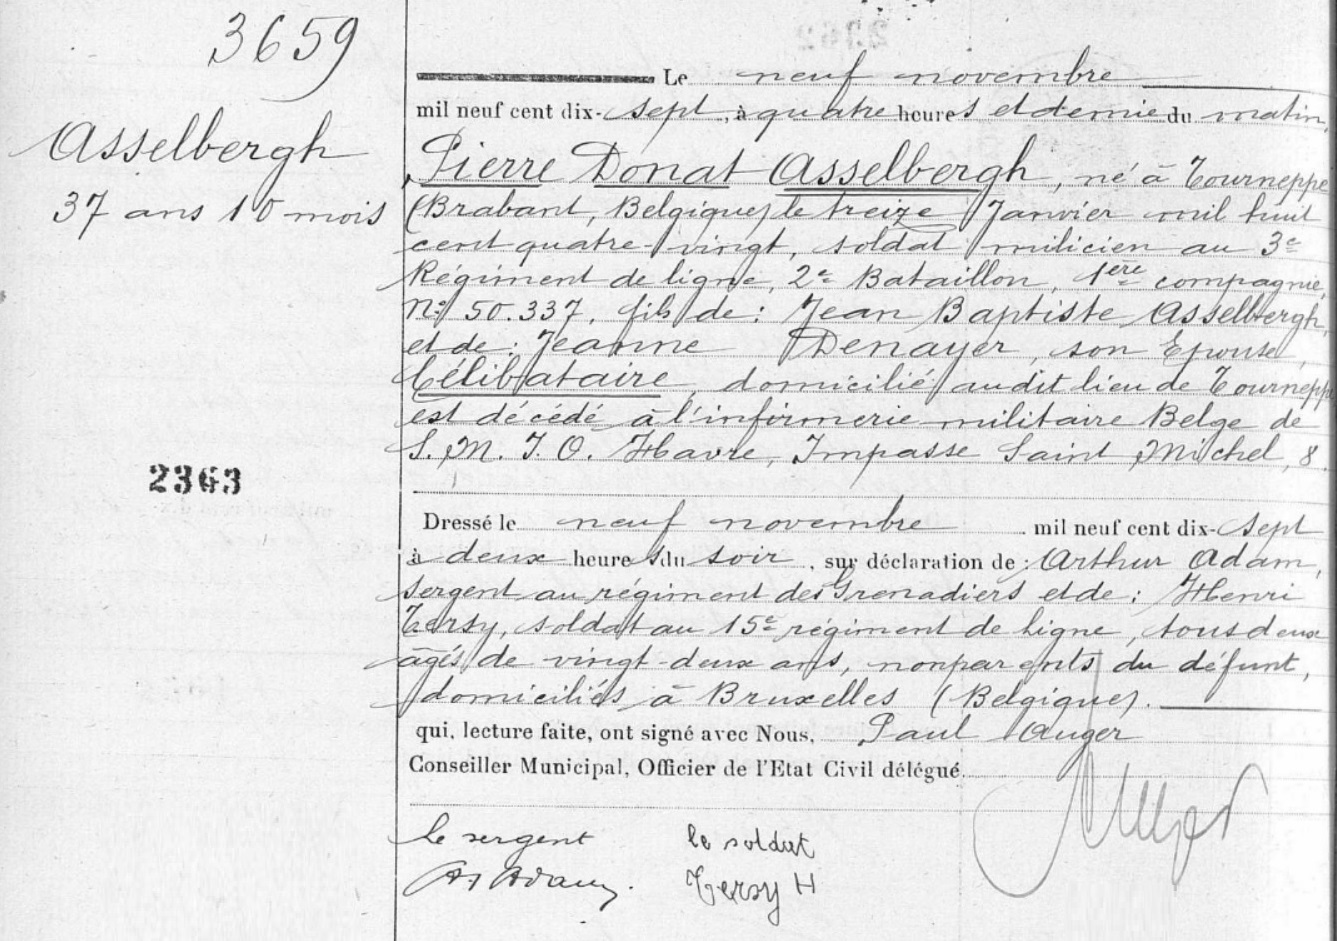 3659
Asselbergh
37 ans 10 mois
2363
Le neuf novembre
mil neuf cent dix-sept, à quatre heures et demie du matin,
Pierre Donat Asselbergh, né à Tourneppe
(Brabant, Belgique) le treize Janvier mil huit
cent quatre-vingt, soldat milicien au 3e
Régiment de ligne, 2e Bataillon, 1ère compagnie,
No 50.337, fils de : Jean Baptiste Asselbergh,
et de : Jeanne Denayer, son Epouse,
Célibataire, domicilié audit lieu de Tourneppe
est décédé à l'infirmerie militaire Belge de
S. M. I. O. Havre, Impasse Saint Michel, 8.
Dressé le neuf novembre mil neuf cent dix-sept
à deux heures du soir, sur déclaration de : Arthur Adam,
Sergent au régiment des Grenadiers et de : Henri
Tersy, soldat au 15e régiment de ligne, tous deux
âgés de vingt-deux ans, non parents du défunt,
domiciliés à Bruxelles (Belgique).
qui, lecture faite, ont signé avec Nous, Paul Auger
Conseiller Municipal, Officier de l'Etat Civil délégué.
le sergent le soldat
Ar Adam. Tersy H
Auger